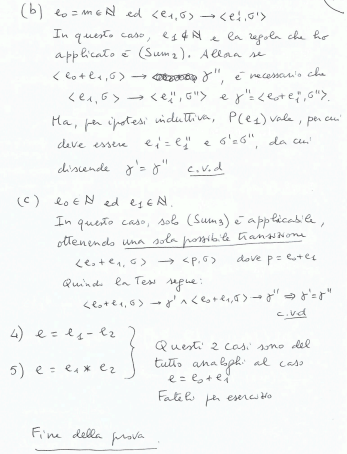 (b) e₀ = m ∈ ℕ ed <e₁,σ> → <e₁',σ'>
In questo caso, e₁ ∉ ℕ e la regola che ho
applicato è (Sum₂). Allora se
<e₀+e₁,σ> → γ'', è necessario che
<e₁,σ> → <e₁'',σ''> e γ''=<e₀+e₁'',σ''>.
Ma, per ipotesi induttiva, P(e₁) vale, per cui
deve essere e₁' = e₁'' e σ'=σ'', da cui
discende γ' = γ'' c.v.d
(c) e₀ ∈ ℕ ed e₁ ∈ ℕ.
In questo caso, solo (Sum₃) è applicabile,
ottenendo una sola possibile transizione
<e₀+e₁,σ> → <p,σ> dove p = e₀+e₁
Quindi la Tesi segue:
<e₀+e₁,σ> → γ' ∧ <e₀+e₁,σ> → γ'' ⇒ γ'=γ''
c.v.d
4) e = e₁ - e₂
5) e = e₁ * e₂
Questi 2 casi sono del
tutto analoghi al caso
e = e₀+e₁
Fateli per esercizio
Fine della prova.